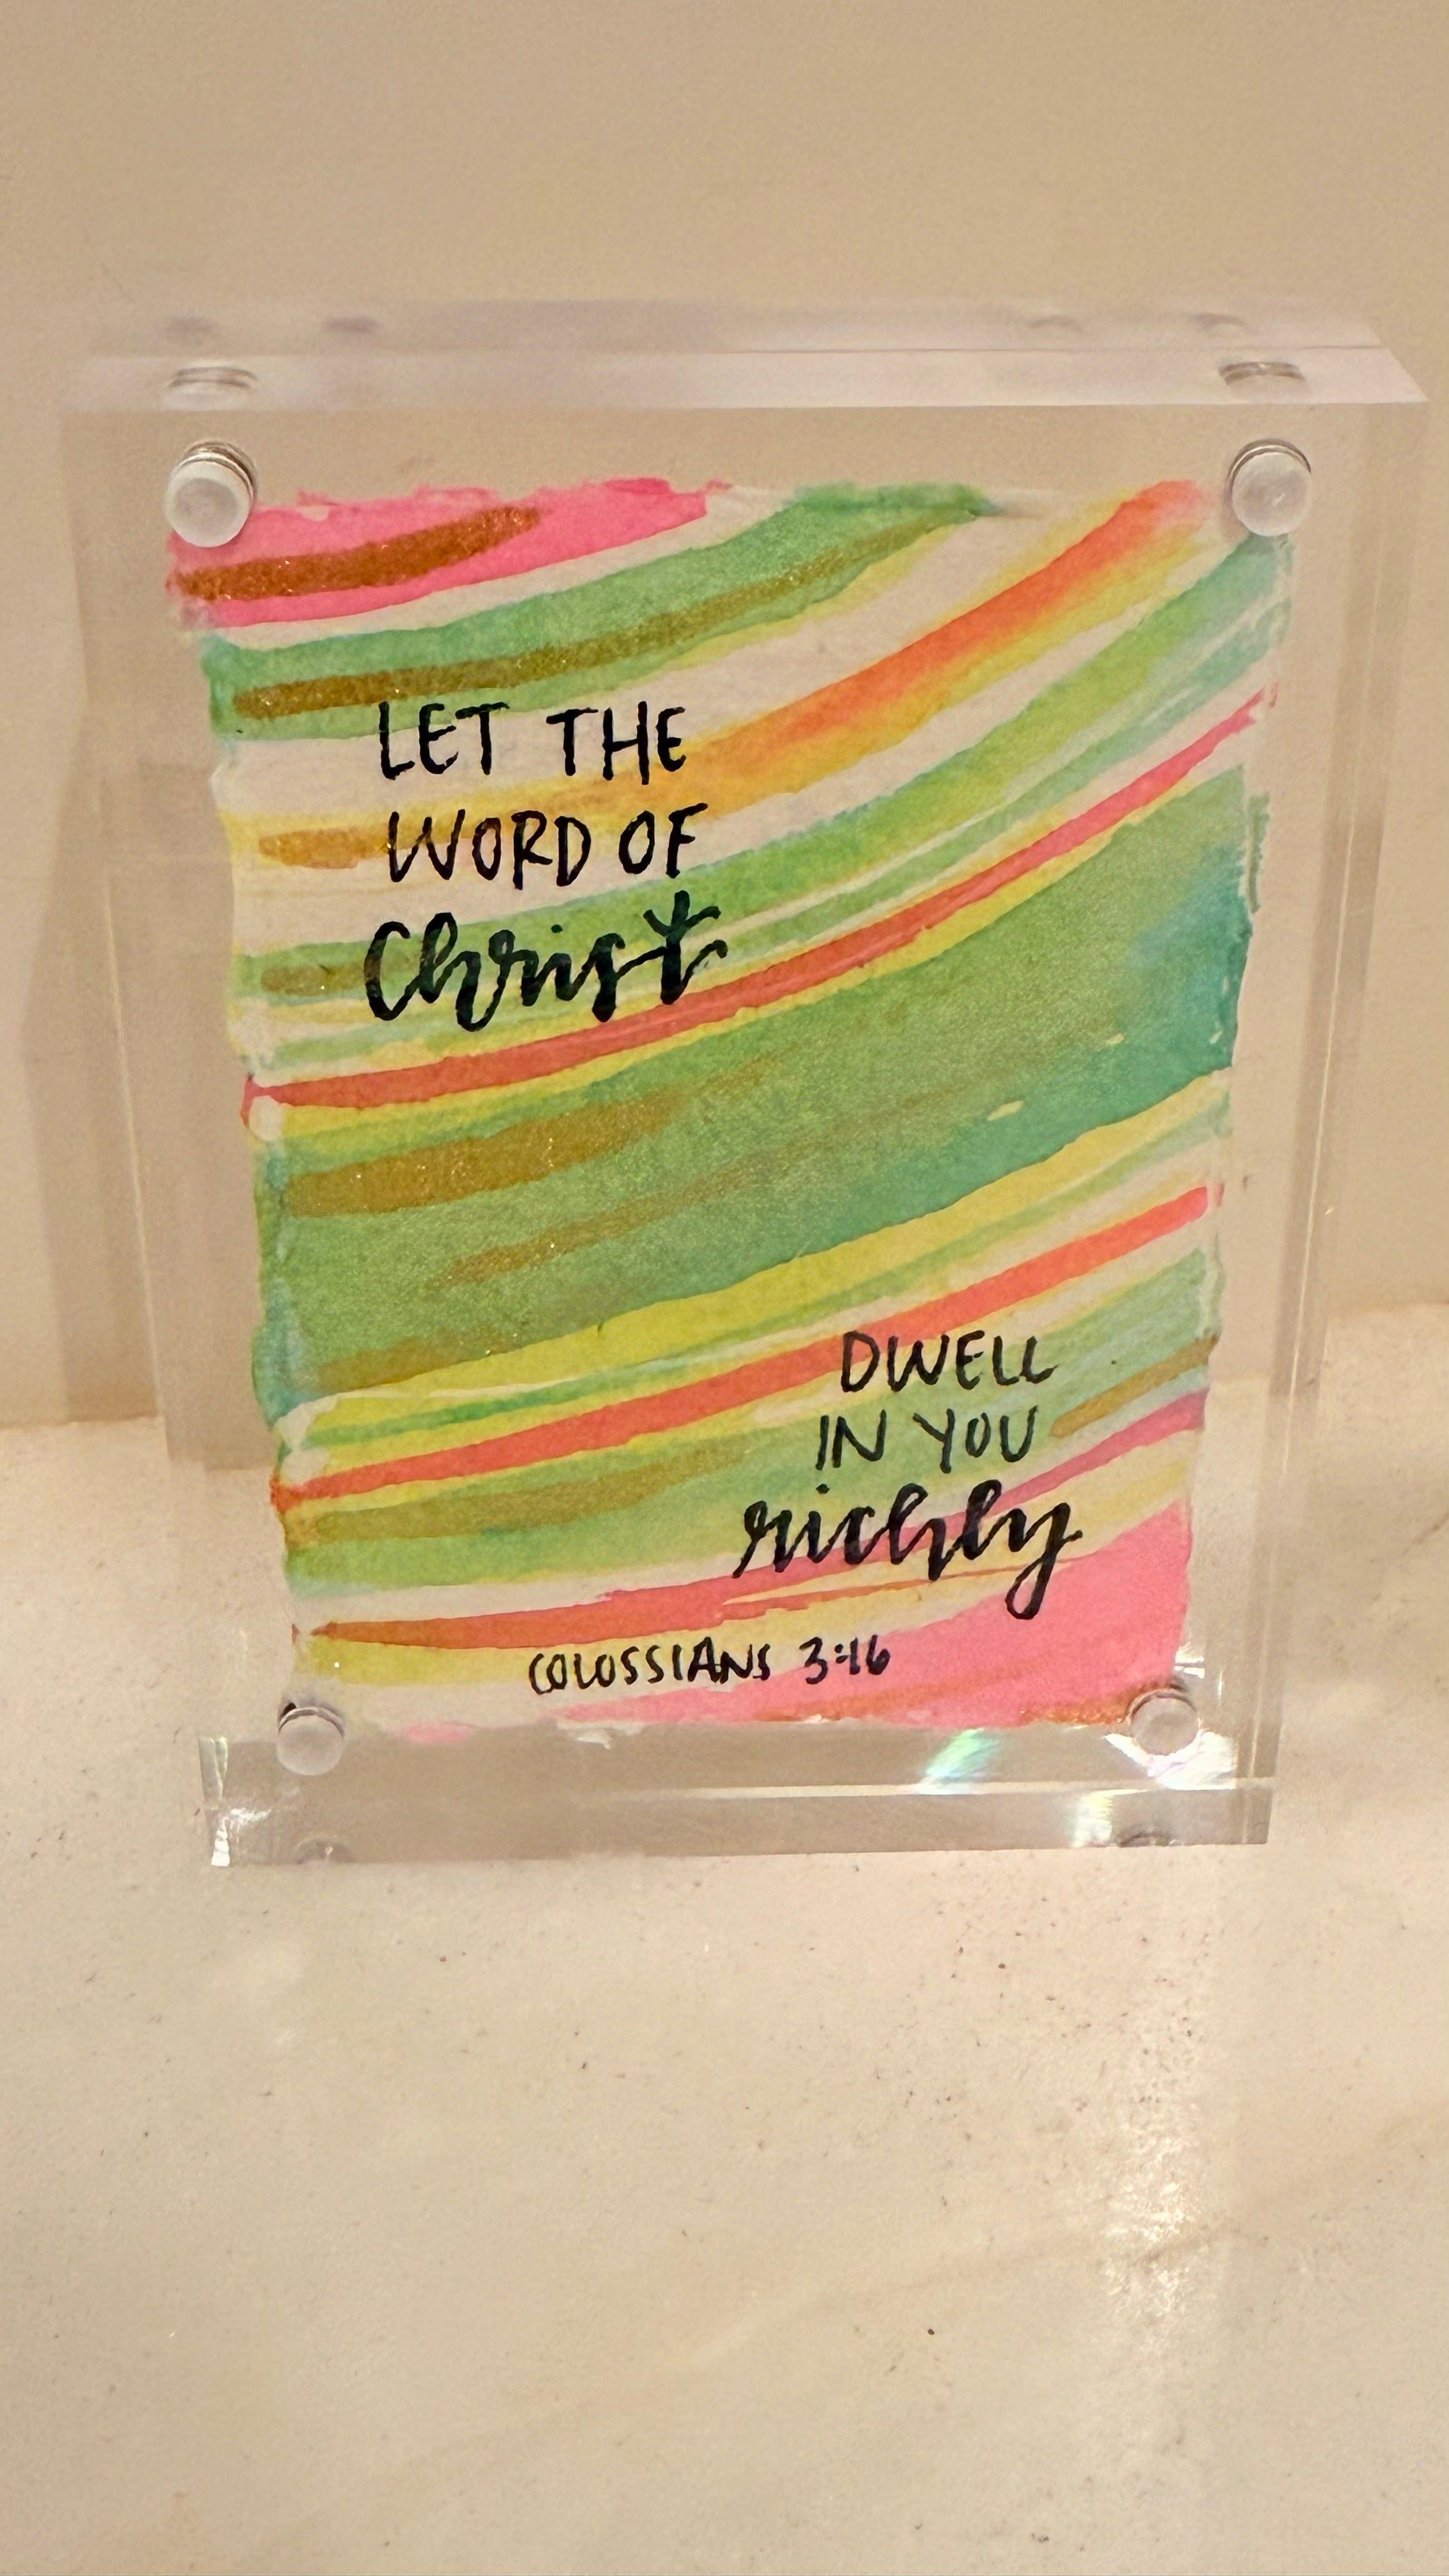 LET THE
WORD OF
Christ
DWELL
IN YOU
richly
COLOSSIANS 3:16